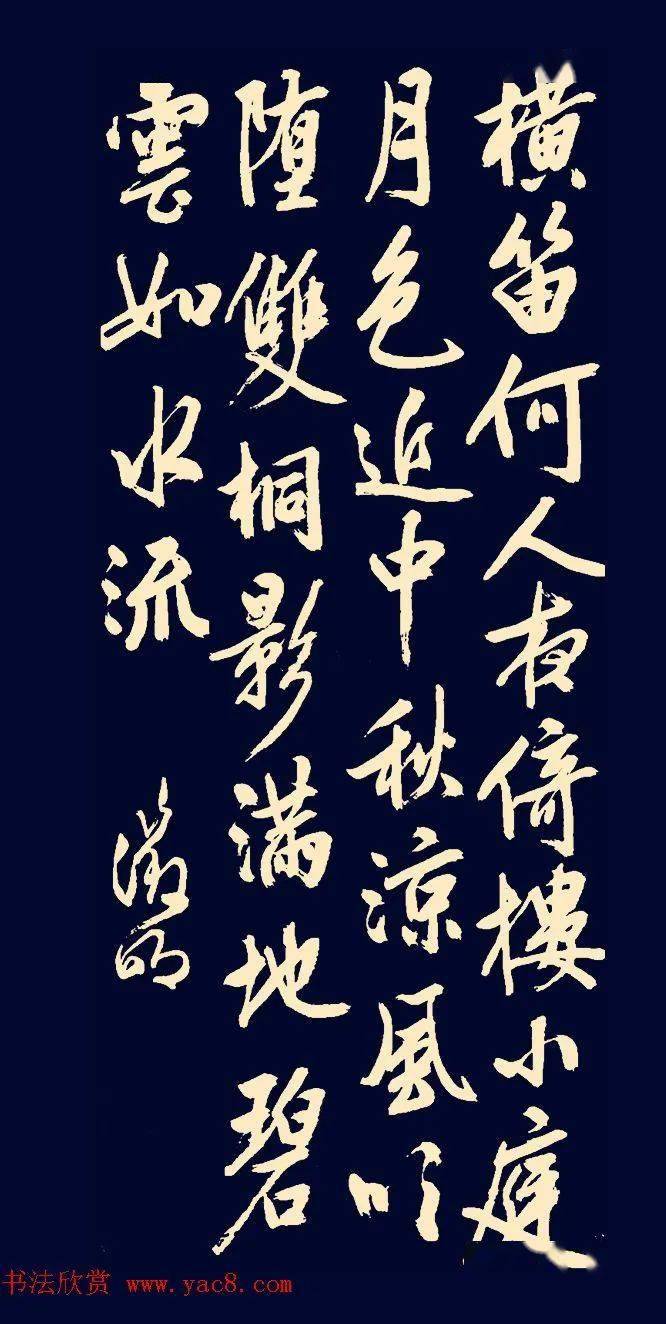 横笛何人夜倚樓小庭
月色近中秋涼風吹
堕雙桐影满地碧
雲如水流
徵明
书法欣赏 www.yac8.com